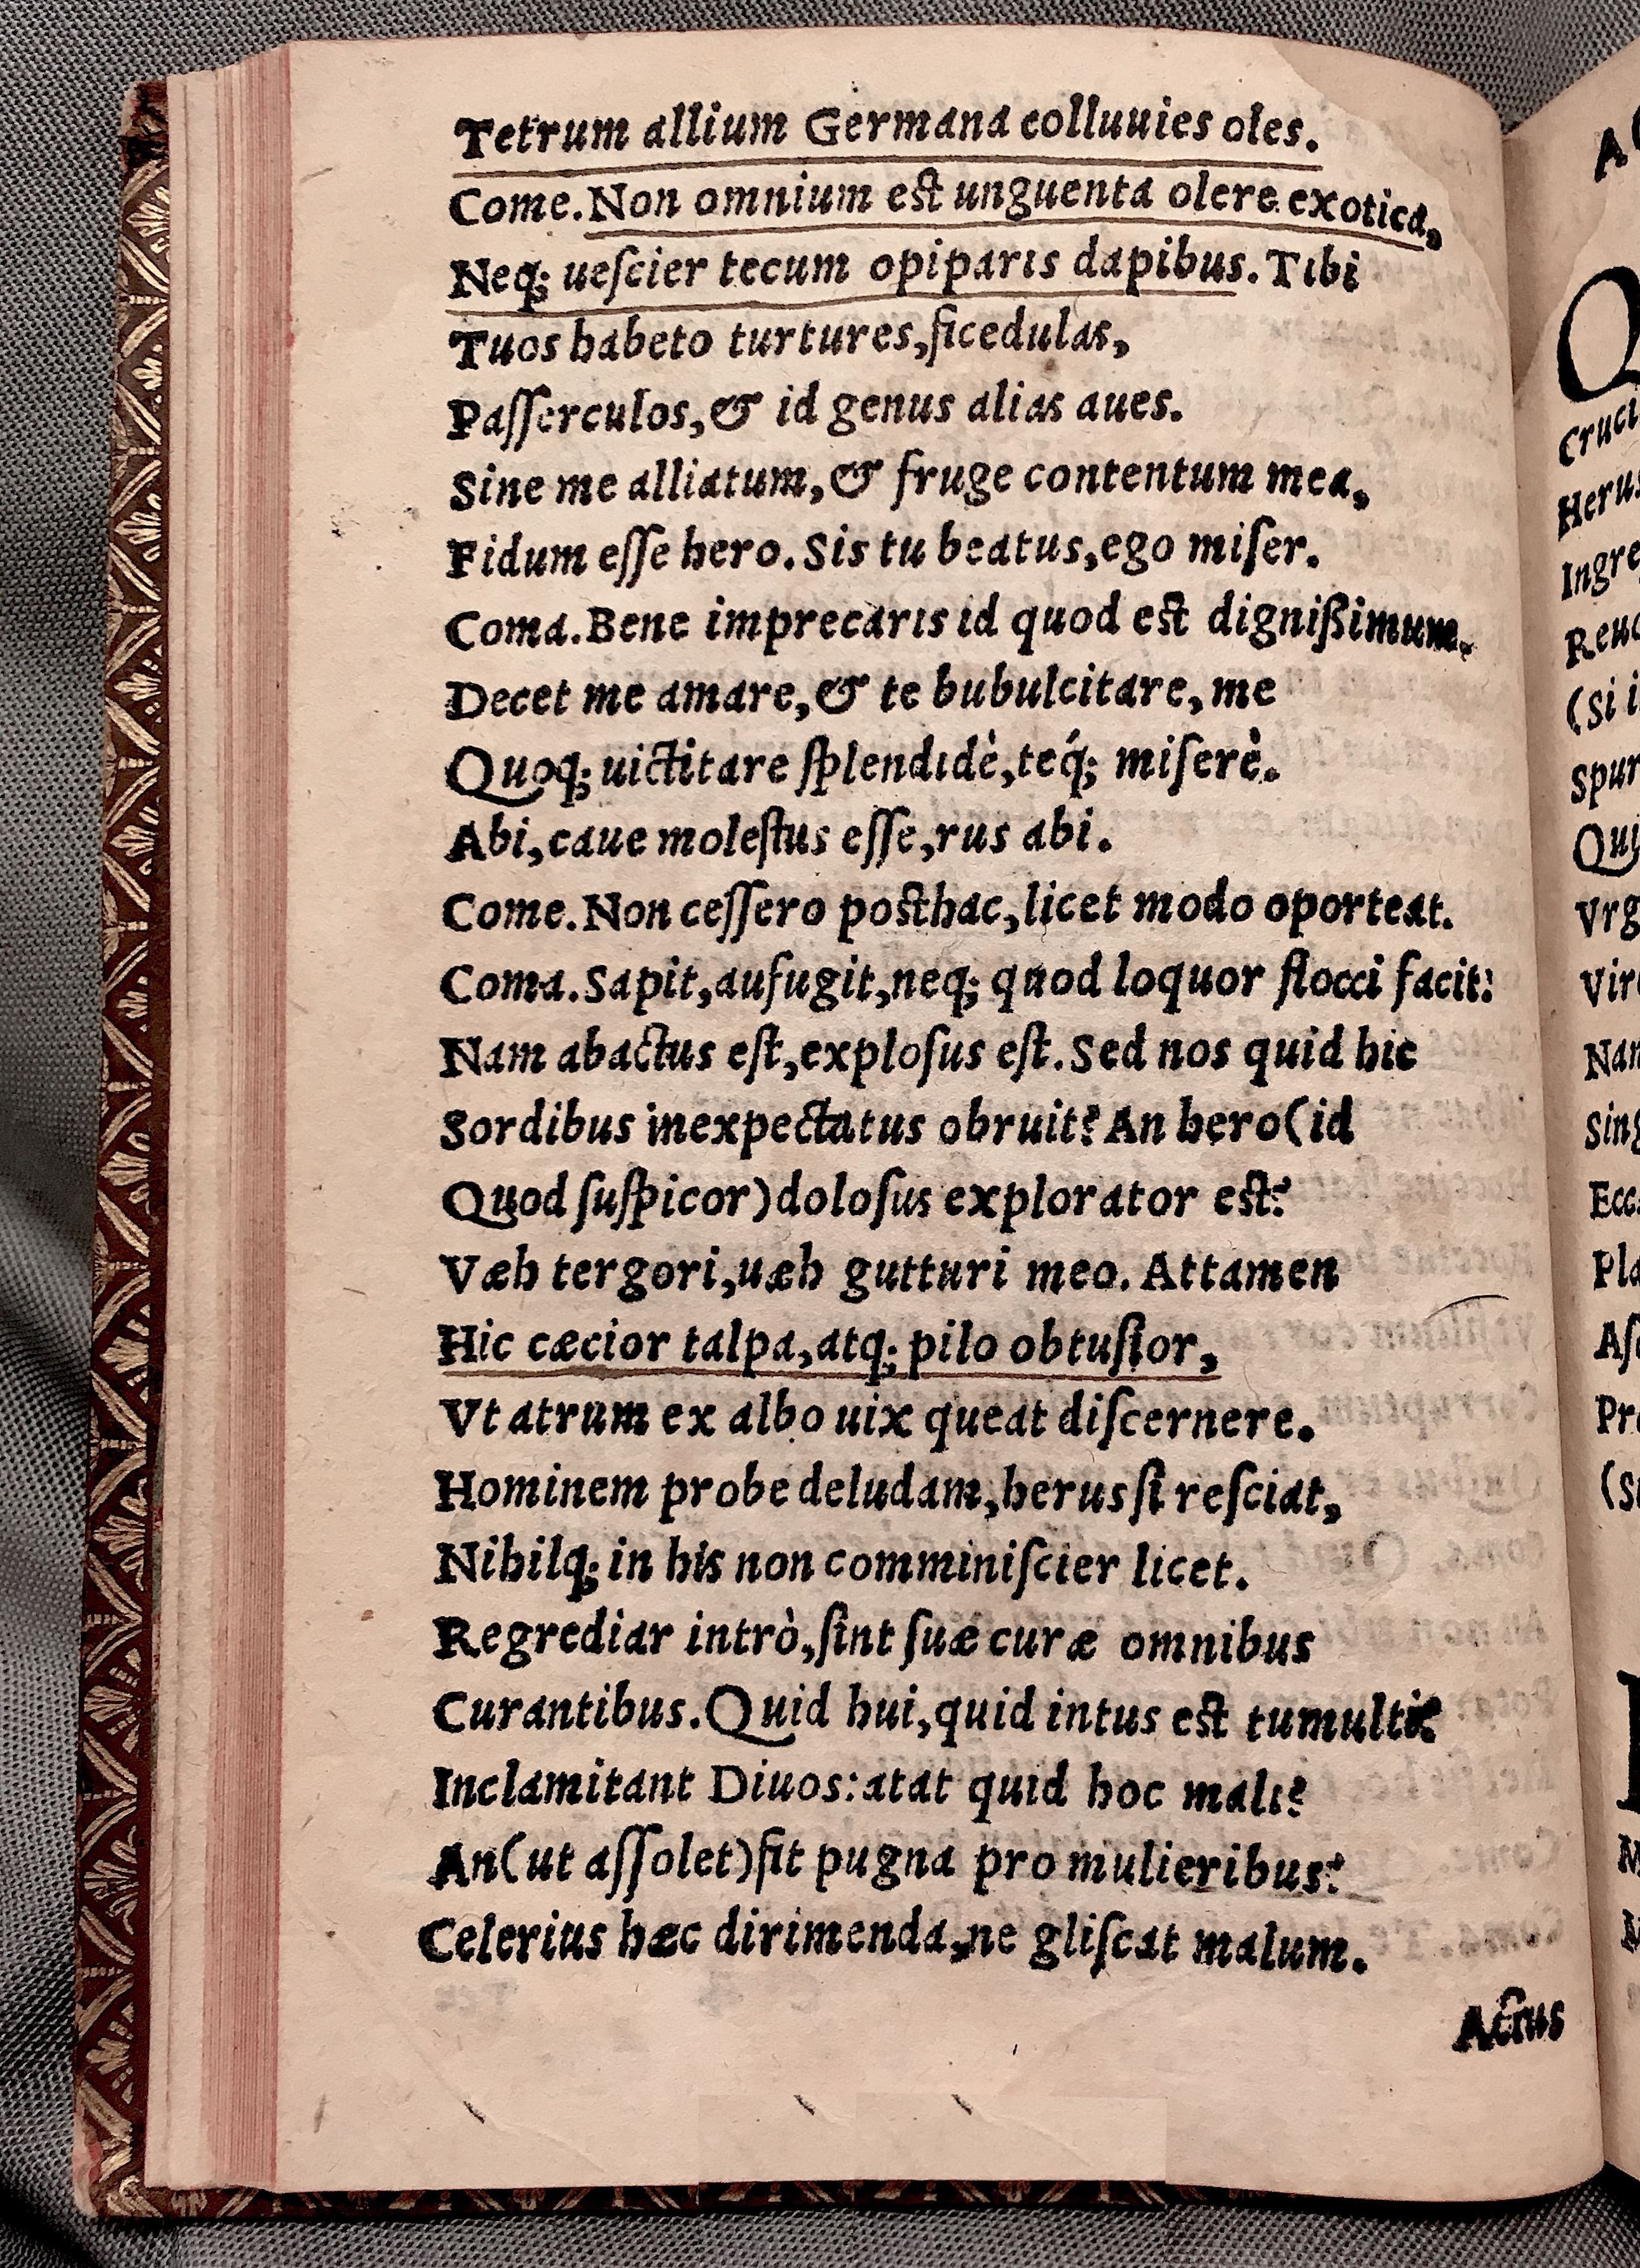 Tetrum allium Germana colluuies oles.
Come. Non omnium est unguenta olere exotica,
Neq; ueſcier tecum opiparis dapibus. Tibi
Tuos habeto turtures, ficedulas,
Paſſerculos, & id genus alias aues.
Sine me alliatum, & fruge contentum mea,
Fidum eſſe hero. Sis tu beatus, ego miſer.
Coma. Bene imprecaris id quod est digniſsimum.
Decet me amare, & te bubulcitare, me
Quoq; uictitare ſplendidè, teq́; miſerè.
Abi, caue moleſtus eſſe, rus abi.
Come. Non ceſſero posthac, licet modo oporteat.
Coma. Sapit, aufugit, neq; quod loquor flocci facit:
Nam abactus eſt, exploſus eſt. Sed nos quid hic
Sordibus inexpectatus obruit? An hero (id
Quod ſuſpicor) doloſus explorator est?
Væh tergori, uæh gutturi meo. Attamen
Hic cæcior talpa, atq; pilo obtuſior,
Vt atrum ex albo uix queat diſcernere.
Hominem probe deludam, herus ſi reſciat,
Nihilq; in his non comminiſcier licet.
Regrediar intrò, ſint ſuæ curæ omnibus
Curantibus. Quid hui, quid intus est tumulti?
Inclamitant Diuos: atat quid hoc mali?
An (ut aſſolet) fit pugna pro mulieribus?
Celerius hæc dirimenda, ne gliſcat malum.
Actus
Q
Cruci
Herus
Ingre
(Si i
Spur
Vrg
Nam
Sing
Ecc
Pla